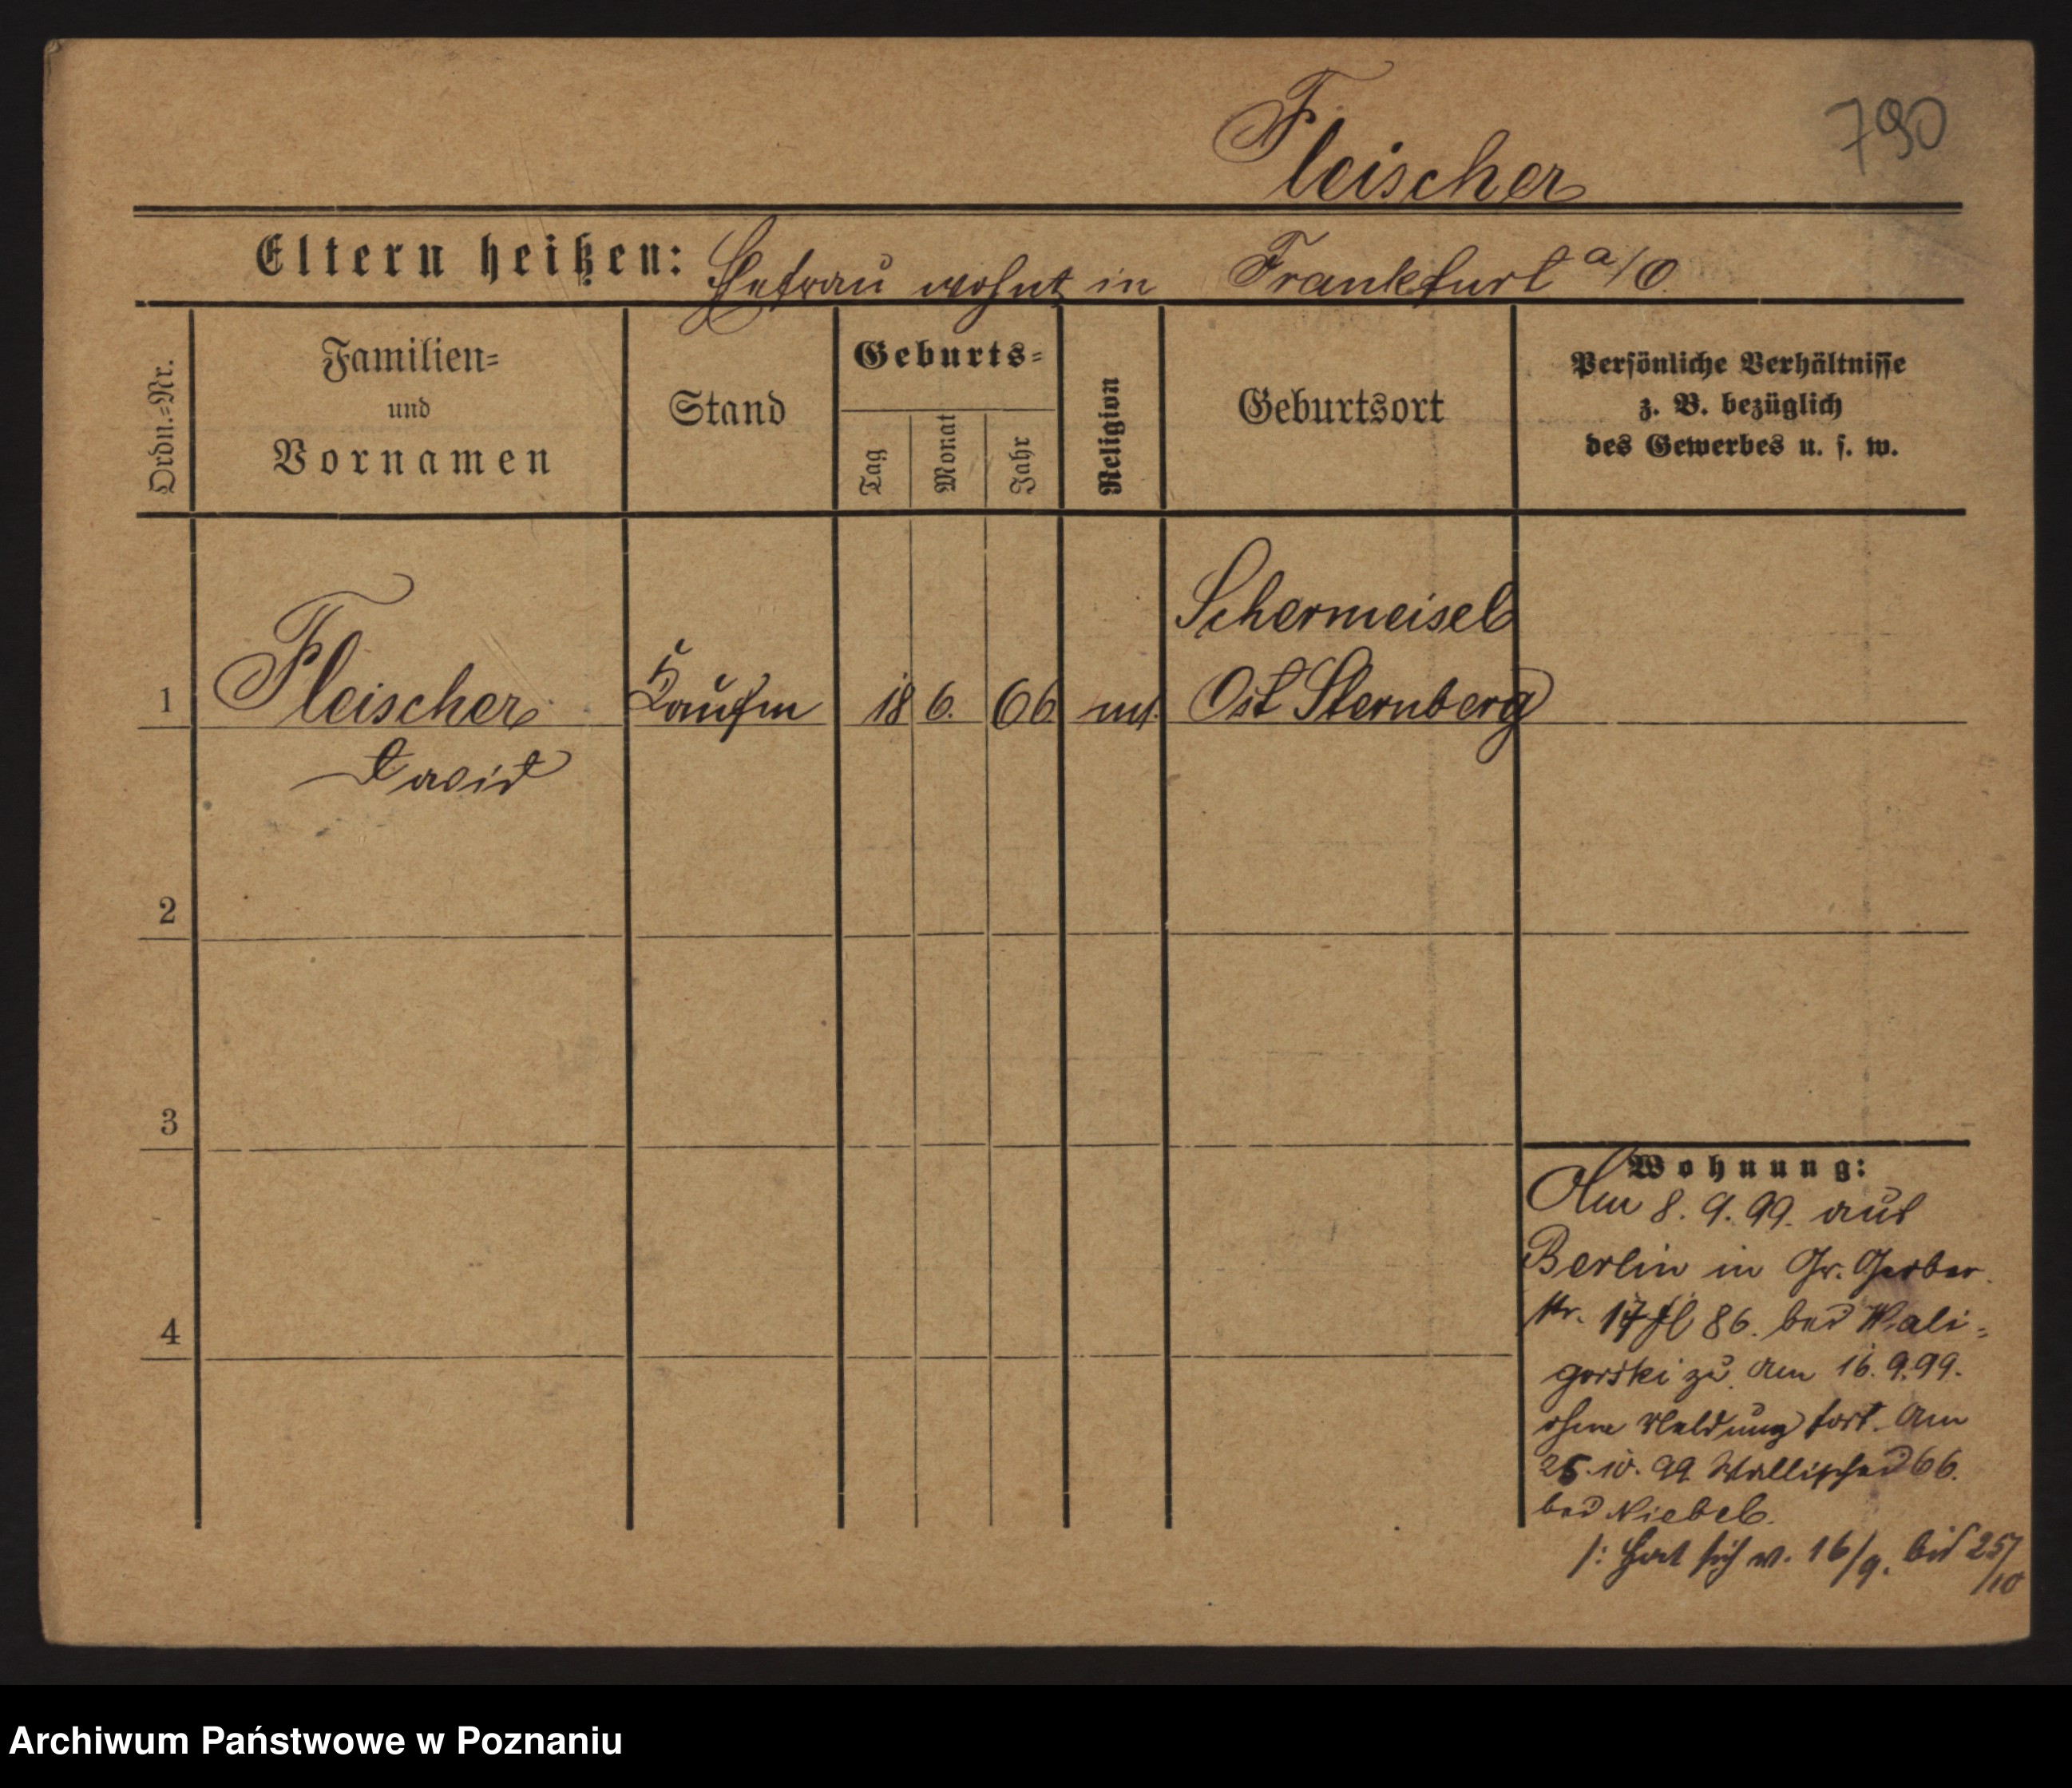 790
Fleischer
Eltern heißen: Ehefrau wohnt in Frankfurt a/O.
Ordn.=Nr.
Familien=
und
Vornamen
Stand
Geburts=
Tag
Monat
Jahr
Religion
Geburtsort
Persönliche Verhältnisse
z. B. bezüglich
des Gewerbes u. s. w.
Schermeisel
1 Fleischer Kaufm 18 6. 66 Ost Sternberg
David
2
3
4
Wohnung:
Am 8. 9. 99. aus
Berlin in Gr. Gerber
str. 17 86. bei Wali=
gorski zu. Am 16. 9. 99.
ohne Meldung fort. Am
25. 10. 99 Wallischei 66.
bei Niebel.
/: hat sich v. 16/9. bis 25/10
Archiwum Państwowe w Poznaniu